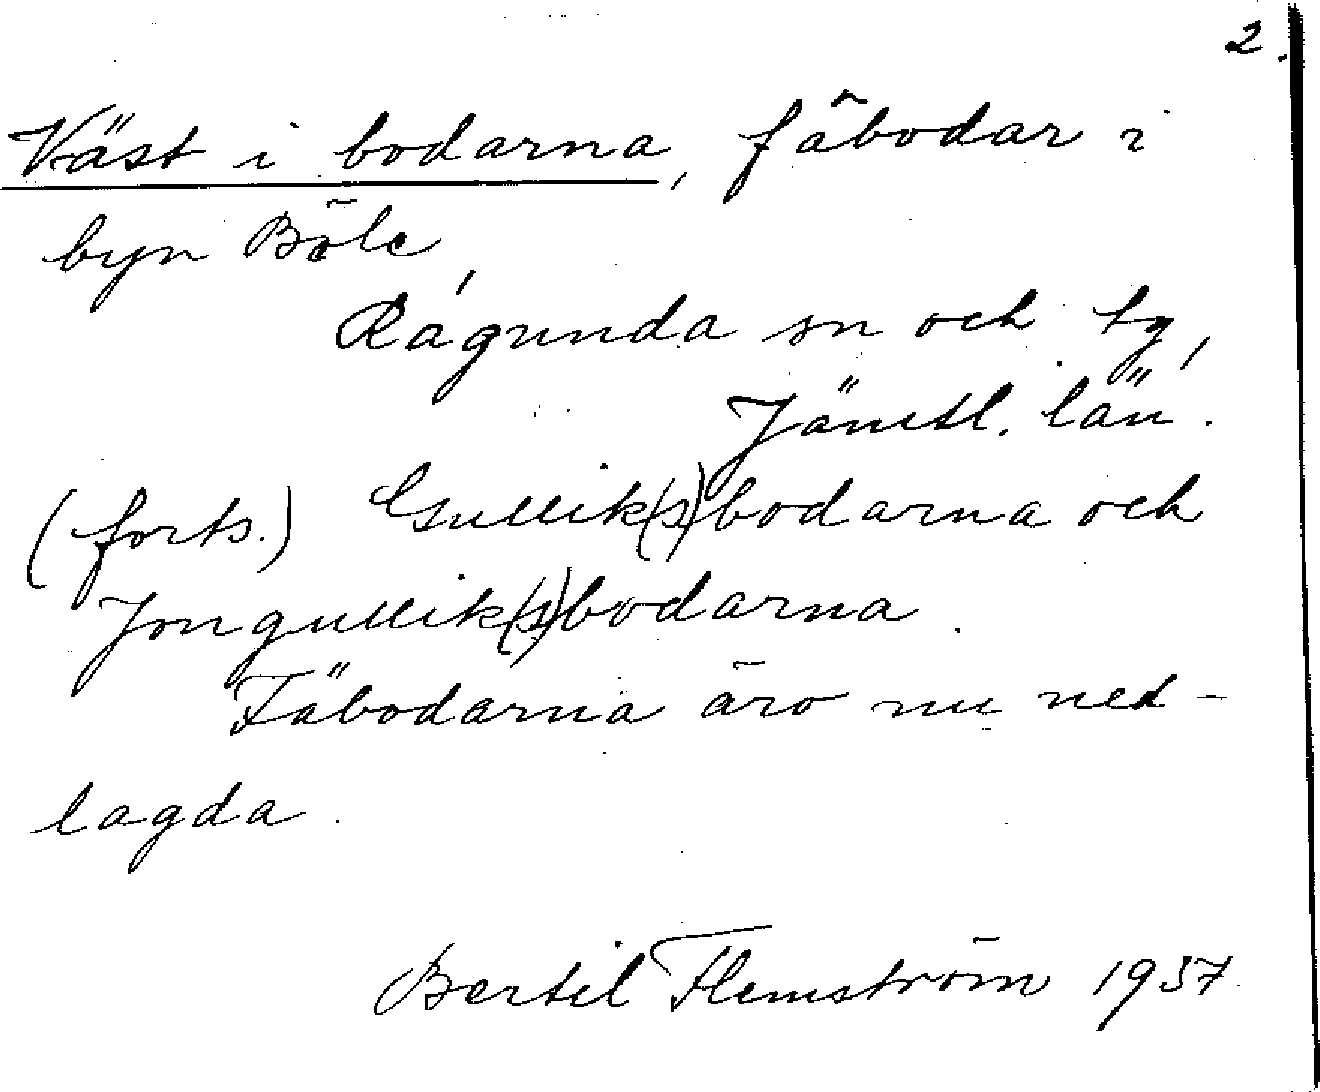 2.
Väst i bodarna, fäbodar i
byn Böle,
Ragunda sn och tg,
Jämtl. län.
(forts.) Gullik(s)bodarna och
Jongullik(s)bodarna.
Fäbodarna äro nu ned-
lagda.
Bertil Flemström 1937